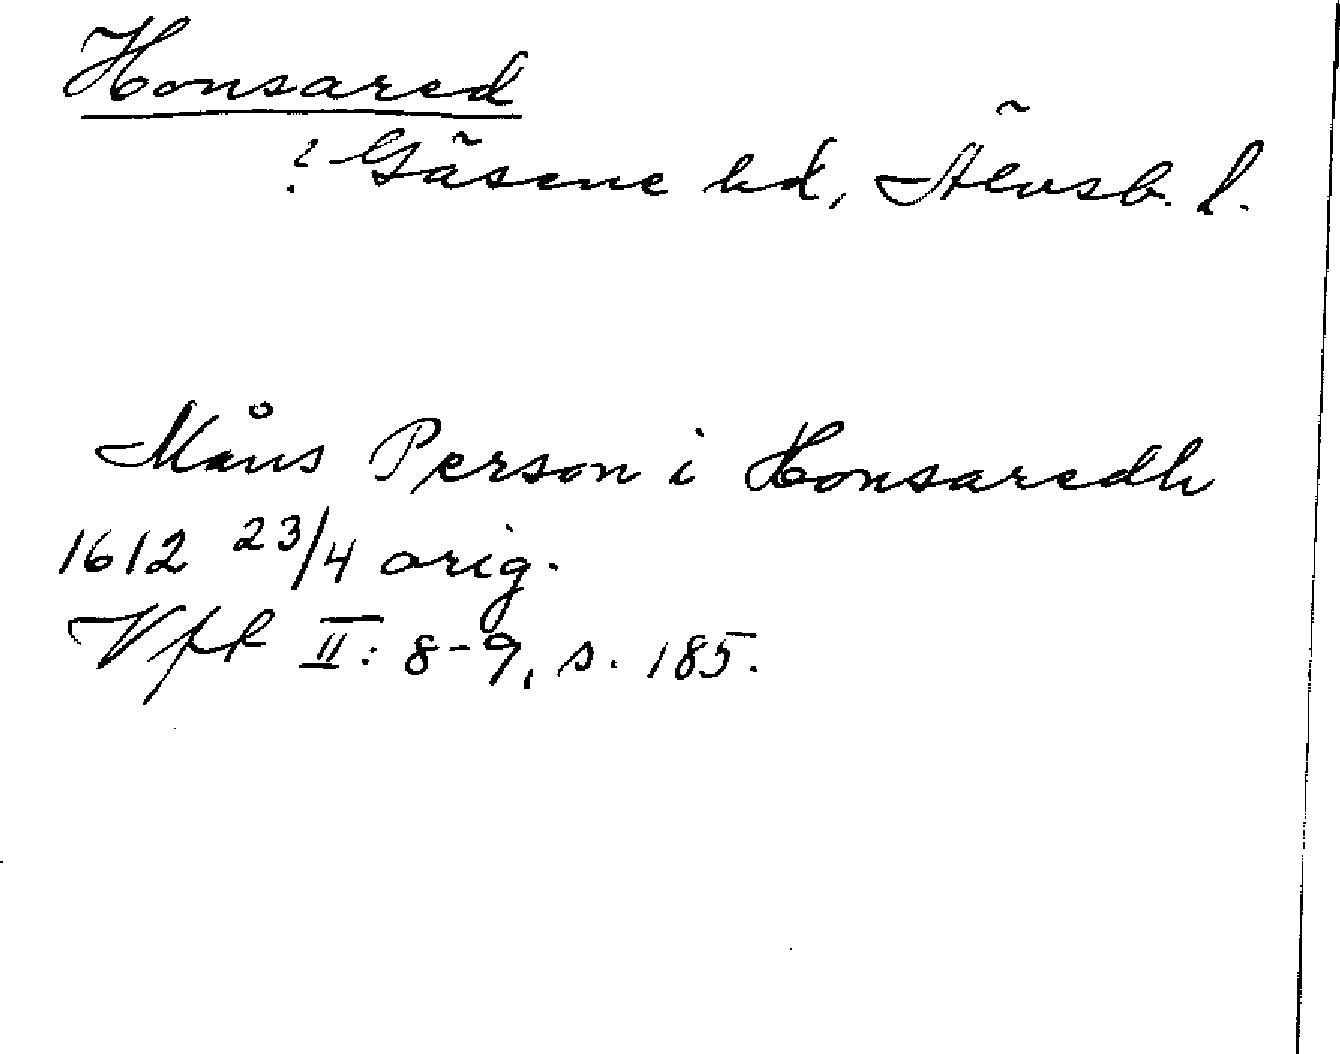 Honsared
? Gäsene hd, Älvsb. l.
Måns Person i Honsaredh
1612 23/4 orig.
Vfk II: 8-9, s. 185.